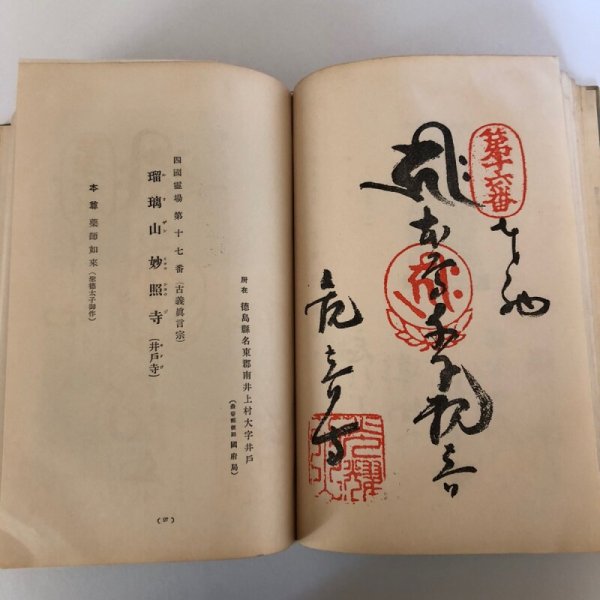 第十六番
奉納
本尊千手観音
観音寺
所在 德島縣名東郡南井上村大字井戸
國府局
四國靈場 第十七番 (古義眞言宗)
瑠璃山 妙照寺 (井戸寺)
本尊 藥師如來 (聖德太子御作)